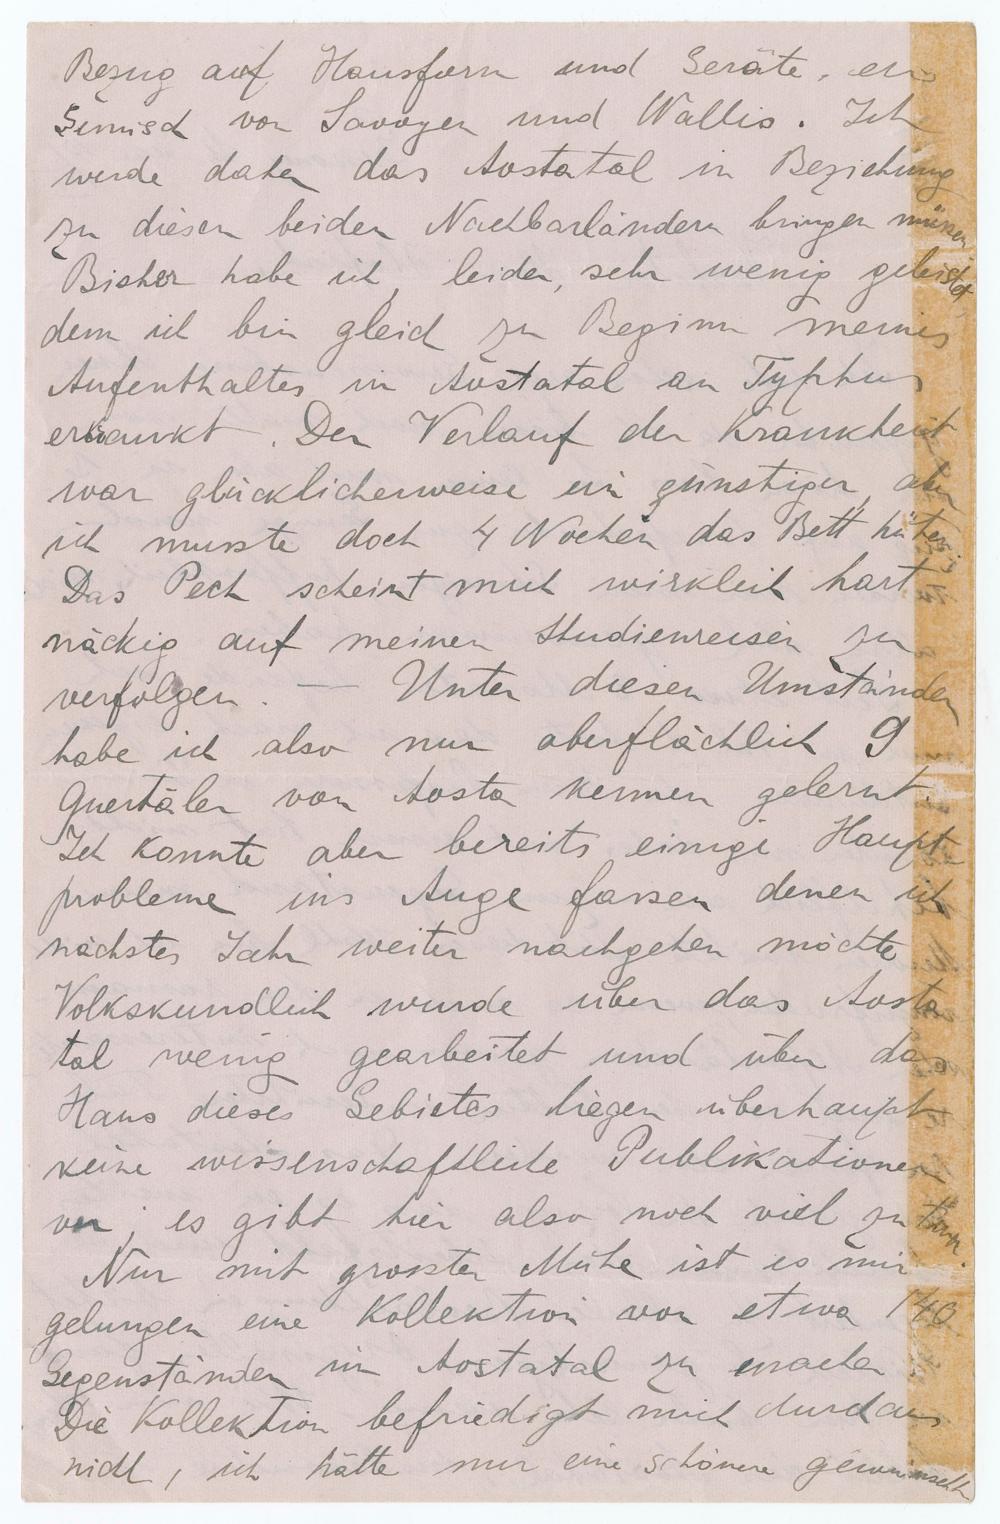 Bezug auf Hausform und Geräte, ein
Gemisch von Savoyen und Wallis. Ich
werde daher das Aostatal in Beziehung
zu diesen beiden Nachbarländern bringen müssen
Bisher habe ich, leider, sehr wenig geleistet
denn ich bin gleich zu Beginn meines
Aufenthaltes im Aostatal an Typhus
erkrankt. Der Verlauf der Krankheit
war glücklicherweise ein günstiger, aber
ich musste doch 4 Wochen das Bett hüten
Das Pech scheint mich wirklich hart
näckig auf meinen Studienreisen zu
verfolgen. — Unter diesen Umständen
habe ich also nur oberflächlich 9
Quertäler von Aosta kennen gelernt.
Ich konnte aber bereits einige Haupt-
probleme ins Auge fassen denen ich
nächstes Jahr weiter nachgehen möchte
Volkskundlich wurde über das Aosta
tal wenig gearbeitet und über das
Haus dieses Gebietes liegen überhaupt
keine wissenschaftliche Publikationen
vor; es gibt hier also noch viel zu tun.
Nur mit grosster Mühe ist es mir
gelungen eine Kollektion von etwa 140
Gegenständen im Aostatal zu machen
Die Kollektion befriedigt mich durchaus
nicht, ich hätte mir eine schönere gewünscht